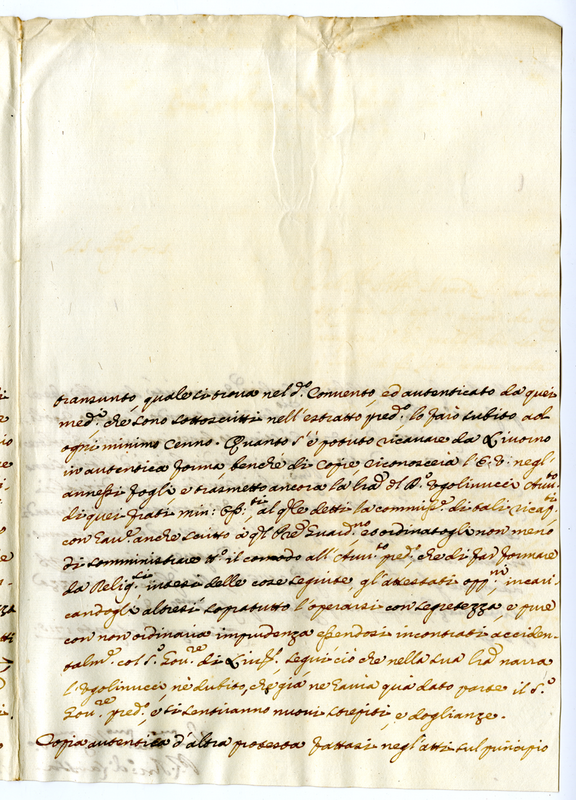 transunto, quale si trova nel d.º Convento ed autenticato da quei
med.i che sono sottoscritti nell'estratto pred.º lo farò subito ad
ogni minimo cenno. Quanto s'è potuto ricavare da Livorno
in autentica forma, benche di copie riconoscerà l'E.V: negl'
annessi fogli e trasmetto ancora la lra del B. Ugolinucci
di quei frati min: al q.le detti la commiss.e di tali
con anche scritto à q.l P.re Guard.no ordinatogli non meno
di somministrare il comodo all' pred.º, che di far formare
da Relig.si intesi delle cose seguite gl'attestati opp.ni, incari-
candogli altresì sopratutto l'operarsi con segretezza, e pure
con non ordinaria impudenza essendosi incontrati acciden-
talm.e col S.r Gov.re di Liv.º, seguì ciò che nella sua lra narra
l'Ugolinucci nè dubito, che già ne havia quà dato parte il S.r
Gov.re pred.º, e si sentiranno nuovi strepiti, e doglianze.
Copia autentica d'altra protesta fattasi negl'atti sul principio